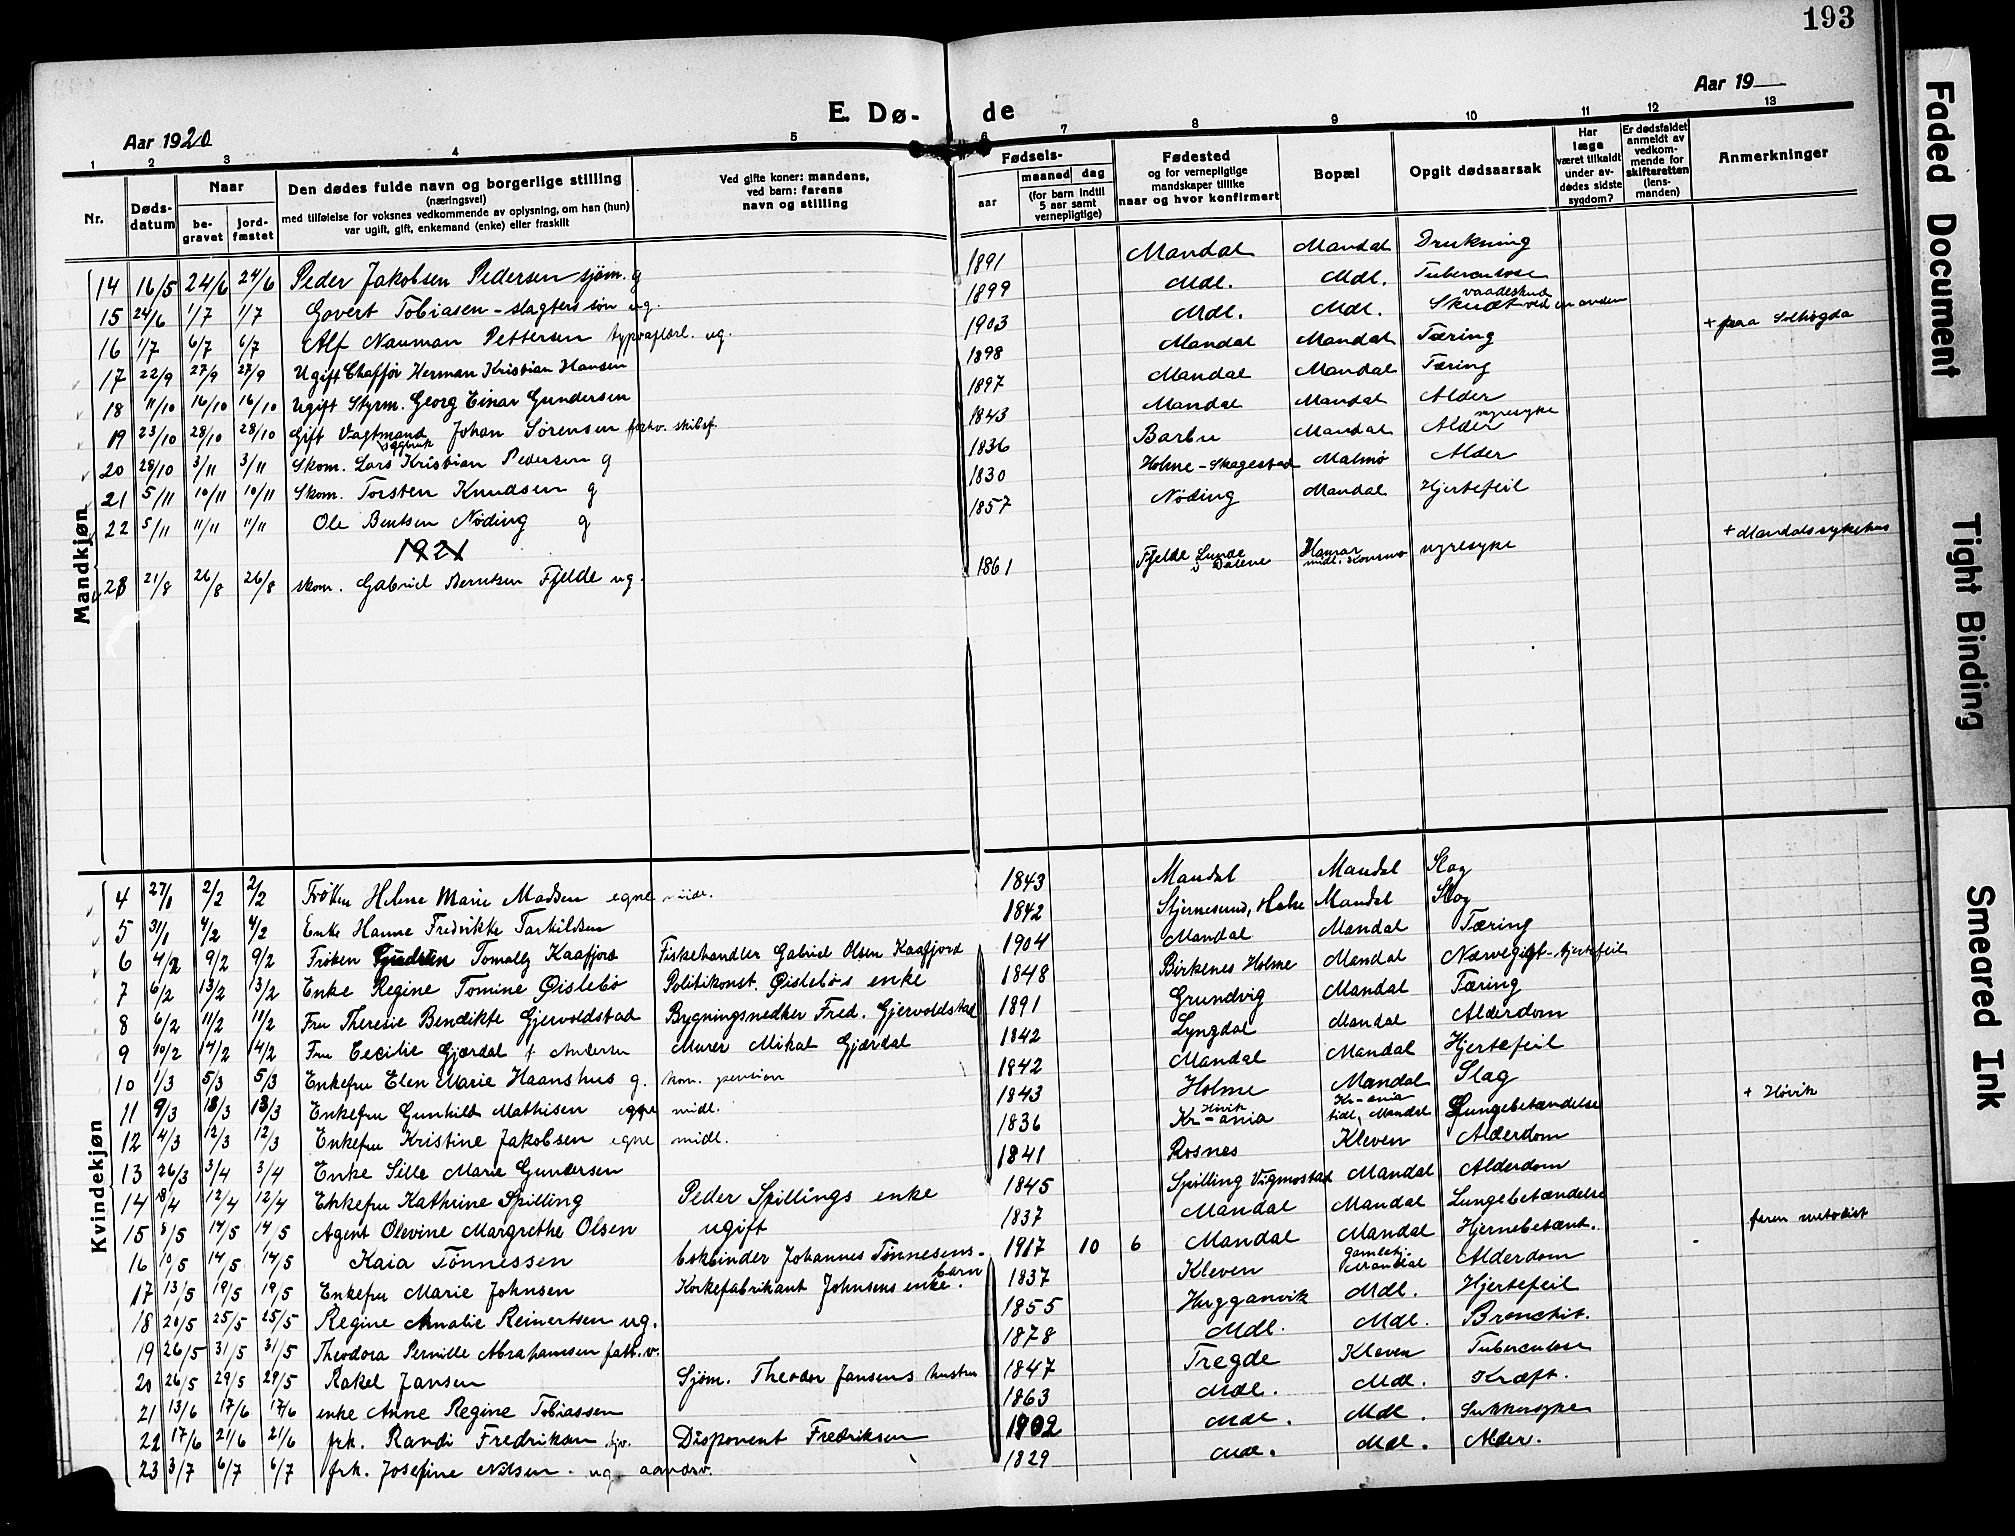 193
Aar 1920
E. Dø- de
Aar 19
1 2 3 4 5 6 7 8 9 10 11 12 13
Nr.
Døds-datum
Naar
be-gravet
jord-fæstet
Den dødes fulde navn og borgerlige stilling
(næringsvei)
med tilføielse for voksnes vedkommende av oplysning, om han (hun)
var ugift, gift, enkemand (enke) eller fraskilt
Ved gifte koner: mandens,
ved barn: farens
navn og stilling
Fødsels-
aar
maaned dag
(for barn indtil
5 aar samt
vernepligtige)
Fødested
og for vernepligtige
mandskaper tillike
naar og hvor konfirmert
Bopæl
Opgit dødsaarsak
Har
læge
været tilkaldt
under av-
dødes sidste
sygdom?
Er dødsfaldet
anmeldt av
vedkom-
mende for
skifteretten
(lens-
manden)
Anmerkninger
Mandkjøn
14 16/5 24/6 24/6 Peder Jakobsen Pedersen sjøm. g 1891 Mandal Mandal Drukning
15 24/6 1/7 1/7 Govert Tobiasen - slagters søn ug. 1899 Mdl. Mdl. Tuberculose
16 1/7 6/7 6/7 Alf Nauman Pettersen ug. 1903 Mdl. Mdl. Skudt ved en anden vaadeskud
17 22/9 27/9 27/9 Ugift Chaffør Herman Kristian Hansen 1898 Mandal Mandal Tæring + paa
18 11/10 16/10 16/10 Ugift Styrm. Georg Einar Gundersen 1897 Mandal Mandal Tæring
19 23/10 28/10 28/10 Gift Vagtmand Johan Sørensen forhv. skibsf. 1843 Mandal Mandal Alder
20 28/10 3/11 3/11 Skom. Lars Kristian Pedersen g 1836 Barbu Mandal Alder nyresyke
21 5/11 10/11 10/11 Skom. Torsten Knudsen g 1830 Holme - Skagestad Malmø Alder
22 5/11 11/11 11/11 Ole Bentsen Nøding g 1857 Nøding Mandal Hjertefeil
1921
23 21/8 26/8 26/8 skom. Gabriel Berntsen Fjelde ug. 1861 Fjelde Lunde i Dalene Hamar nyresyke + Mandals sykehus
Kvindekjøn
4 27/1 2/2 2/2 Frøken Helene Marie Madsen egne midl. 1843 Mandal Mandal Slag
5 31/1 4/2 4/2 Enke Hanne Fredrikke Tarkildsen 1842 Stjernesund, Holme Mandal Slag
6 4/2 9/2 9/2 Frøken Gudrun Kaafjord Fiskehandler Gabriel Olsen Kaafjord 1904 Mandal Mandal Tæring
7 6/2 13/2 13/2 Enke Regine Tomine Øislebø Politikonst. Øislebøs enke 1848 Birkenes Holme Mandal Nærvegigt - hjertefeil
8 6/2 11/2 11/2 Fru Theresie Bendikte Gjervoldstad Bygningsnedker Fred. Gjervoldstad 1891 Grundvig Mandal Tæring
9 10/2 14/2 14/2 Fru Cecilie Gjærdal f. Andersen Murer Mikal Gjærdal 1842 Lyngdal Mandal Alderdom
10 1/3 5/3 5/3 Enkefru Elen Marie Haanshus g. kom. pension 1842 Mandal Mandal Hjertefeil
11 9/3 13/3 13/3 Enkefru Gunhild Mathisen egne midl. 1843 Holme Mandal Slag
12 14/3 12/3 12/3 Enkefru Kristine Jakobsen egne midl. 1836 Kr-ania Høvik Kr-ania tidl. Mandal Lungebetændelse + Høvik
13 26/3 3/4 3/4 Enke Sille Marie Gundersen 1841 Rosnes Kleven Alderdom
14 8/4 12/4 12/4 Enkefru Kathrine Spilling Peder Spillings enke 1845 Spilling Vigmostad Mandal Alderdom
15 8/5 14/5 14/5 Agent Olevine Margrethe Olsen ugift 1837 Mandal Mandal Lungebetændelse
16 10/5 14/5 14/5 Kaia Tønnessen bokbinder Johannes Tønnesens barn 1917 10 6 Mandal Mandal Hjernebetænt. faren metodist
17 13/5 19/5 19/5 Enkefru Marie Johnsen Korkefabrikant Johnsens enke. 1837 Kleven Alderdom
18 20/5 25/5 25/5 Regine Amalie Reinertsen ug. 1855 Hugganvik Mdl. Hjertefeil
19 26/5 31/5 31/5 Theodora Pernille Abrahamsen fatt.v. 1878 Mdl. Mdl. Bronchit.
20 26/5 29/5 29/5 Rakel Jansen Sjøm. Theodor Jansens hustru 1847 Tregde Kleven Tuberculose
21 13/6 17/6 17/6 enke Anne Regine Tobiassen 1863 Mdl. Mdl. Kræft.
22 17/6 21/6 21/6 frk. Randi Fredriksen Disponent Fredriksen 1902 Mdl. Mdl. Sukkersyke
23 3/7 6/7 6/7 frk. Josefine Nilsen. ug. 1829 Mdl. Mdl. Alder.
Faded Document
Tight Binding
Smeared Ink